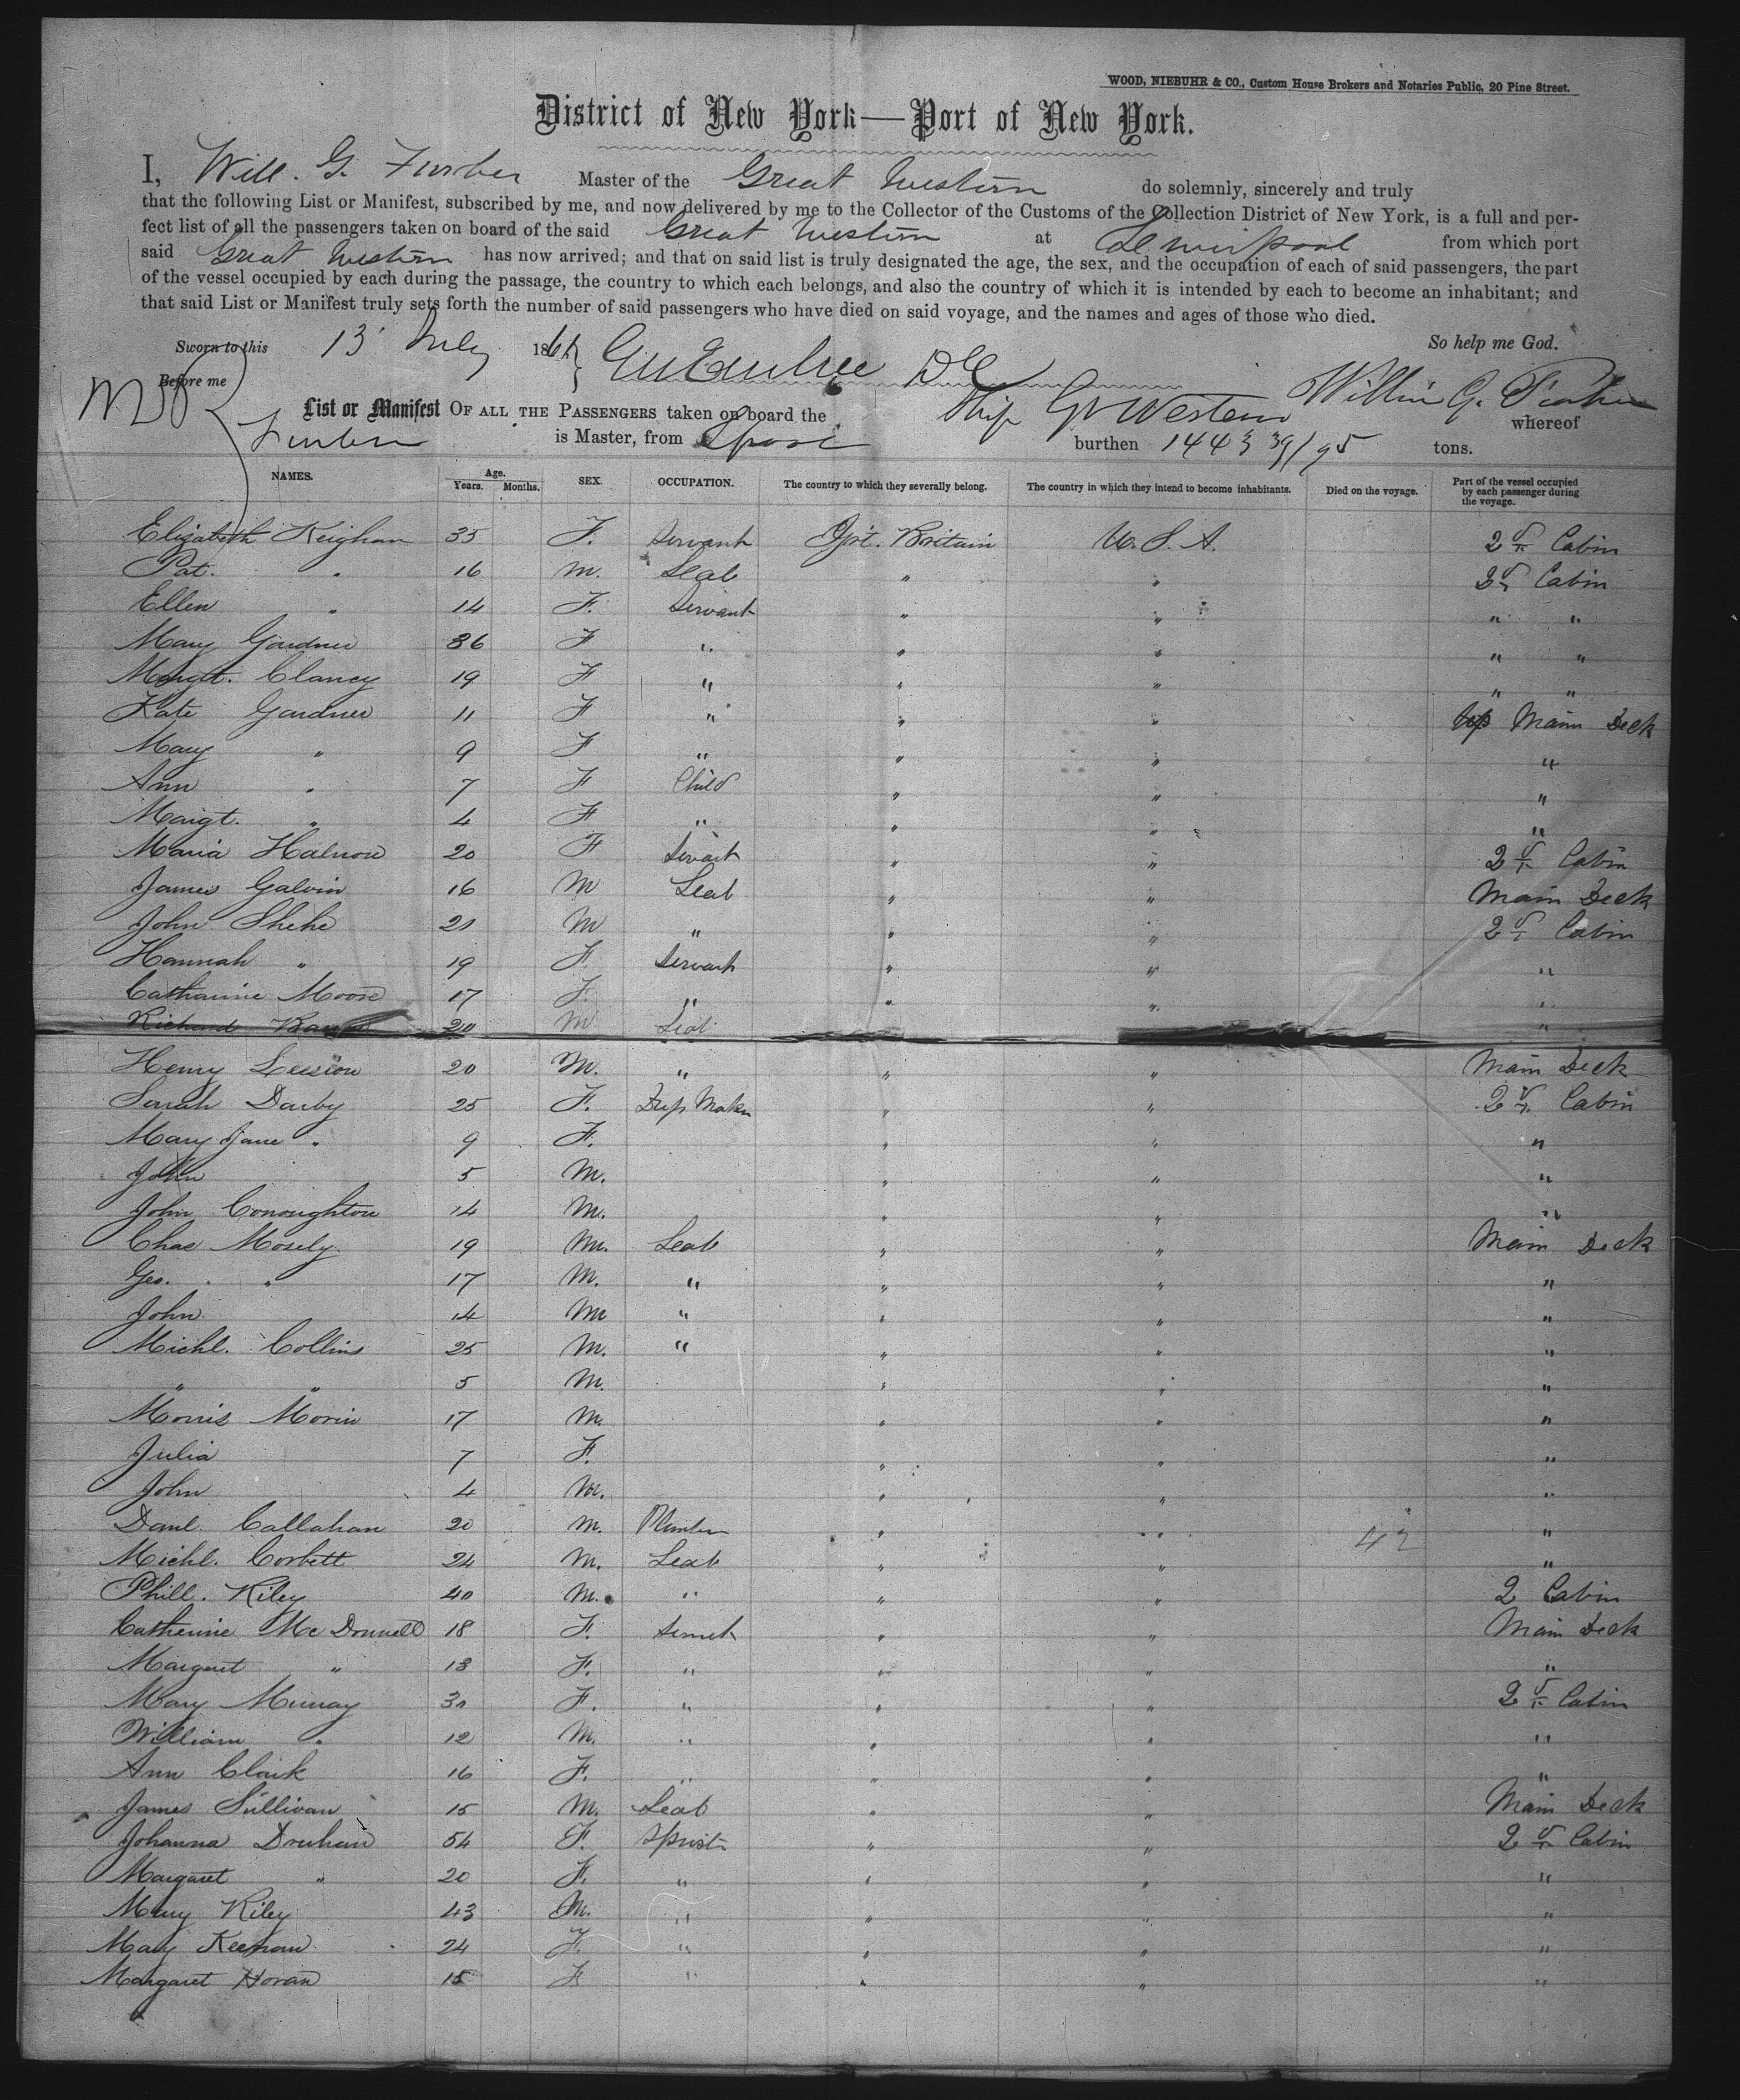 WOOD, NIEBUHR & CO., Custom House Brokers and Notaries Public, 20 Pine Street.
District of New York—Port of New York.
I, Will. G. Furber Master of the Great Western do solemnly, sincerely and truly
that the following List or Manifest, subscribed by me, and now delivered by me to the Collector of the Customs of the Collection District of New York, is a full and per-
fect list of all the passengers taken on board of the said Great Western at Liverpool from which port
said Great Western has now arrived; and that on said list is truly designated the age, the sex, and the occupation of each of said passengers, the part
of the vessel occupied by each during the passage, the country to which each belongs, and also the country of which it is intended by each to become an inhabitant; and
that said List or Manifest truly sets forth the number of said passengers who have died on said voyage, and the names and ages of those who died.
Sworn to this 13 July 1861 So help me God.
Before me
List or Manifest OF ALL THE PASSENGERS taken on board the Ship Gt Western whereof
Furber is Master, from Lpool burthen 1443 39/95 tons.
NAMES. Age. Years. Months. SEX. OCCUPATION. The country to which they severally belong. The country in which they intend to become inhabitants. Died on the voyage. Part of the vessel occupied by each passenger during the voyage.
Elizabeth Keighan 35 F. Servant Grt. Britain U. S. A. 2d Cabin
Pat. " 16 M. Lab " " 2d Cabin
Ellen " 14 F. Servant " " " "
Mary Gardner 36 F " " " " "
Margt. Clancy 19 F " " " " "
Kate Gardner 11 F " " " Main Deck
Mary " 9 F " " " "
Ann " 7 F Child " " "
Margt. " 4 F " " " "
Maria 20 F Servant " " 2d Cabin
James Galvin 16 M Lab " " Main Deck
John Shehe 21 M " " " 2d Cabin
Hannah " 19 F. Servant " " "
Catharine Moore 17 F. " " " "
Richard 20 M Lab "
Henry 20 M. " " " Main Deck
Sarah Darby 25 F. Dress Maker " " 2d Cabin
Mary Jane " 9 F. " " "
John 5 M. " " "
John Conoughton 14 M. " " "
Chas Mosely 19 M. Lab " " Main Deck
Geo. " 17 M. " " " "
John 14 M " " " "
Michl. Collins 25 M. " " " "
" " 5 M. " " "
Morris Morin 17 M. " " "
Julia 7 F. " " "
John 4 M. " " "
Danl. Callahan 20 M. Plumber " " "
Michl. Corbett 24 M. Lab " " 42 "
Phill. Riley 40 M. " " " 2 Cabin
Catherine Mc Donnell 18 F. Servnt " " Main Deck
Margaret " 13 F. " " " "
Mary Murray 30 F. " " " 2d Cabin
William " 12 M. " " " "
Ann Clark 16 F. " " " "
James Sullivan 15 M. Lab " " Main Deck
Johanna 54 F. Spinstr " " 2d Cabin
Margaret " 20 F. " " " "
Mary Riley 43 M. " " " "
Mary 24 F. " " " "
Margaret Horan 15 F " " " "